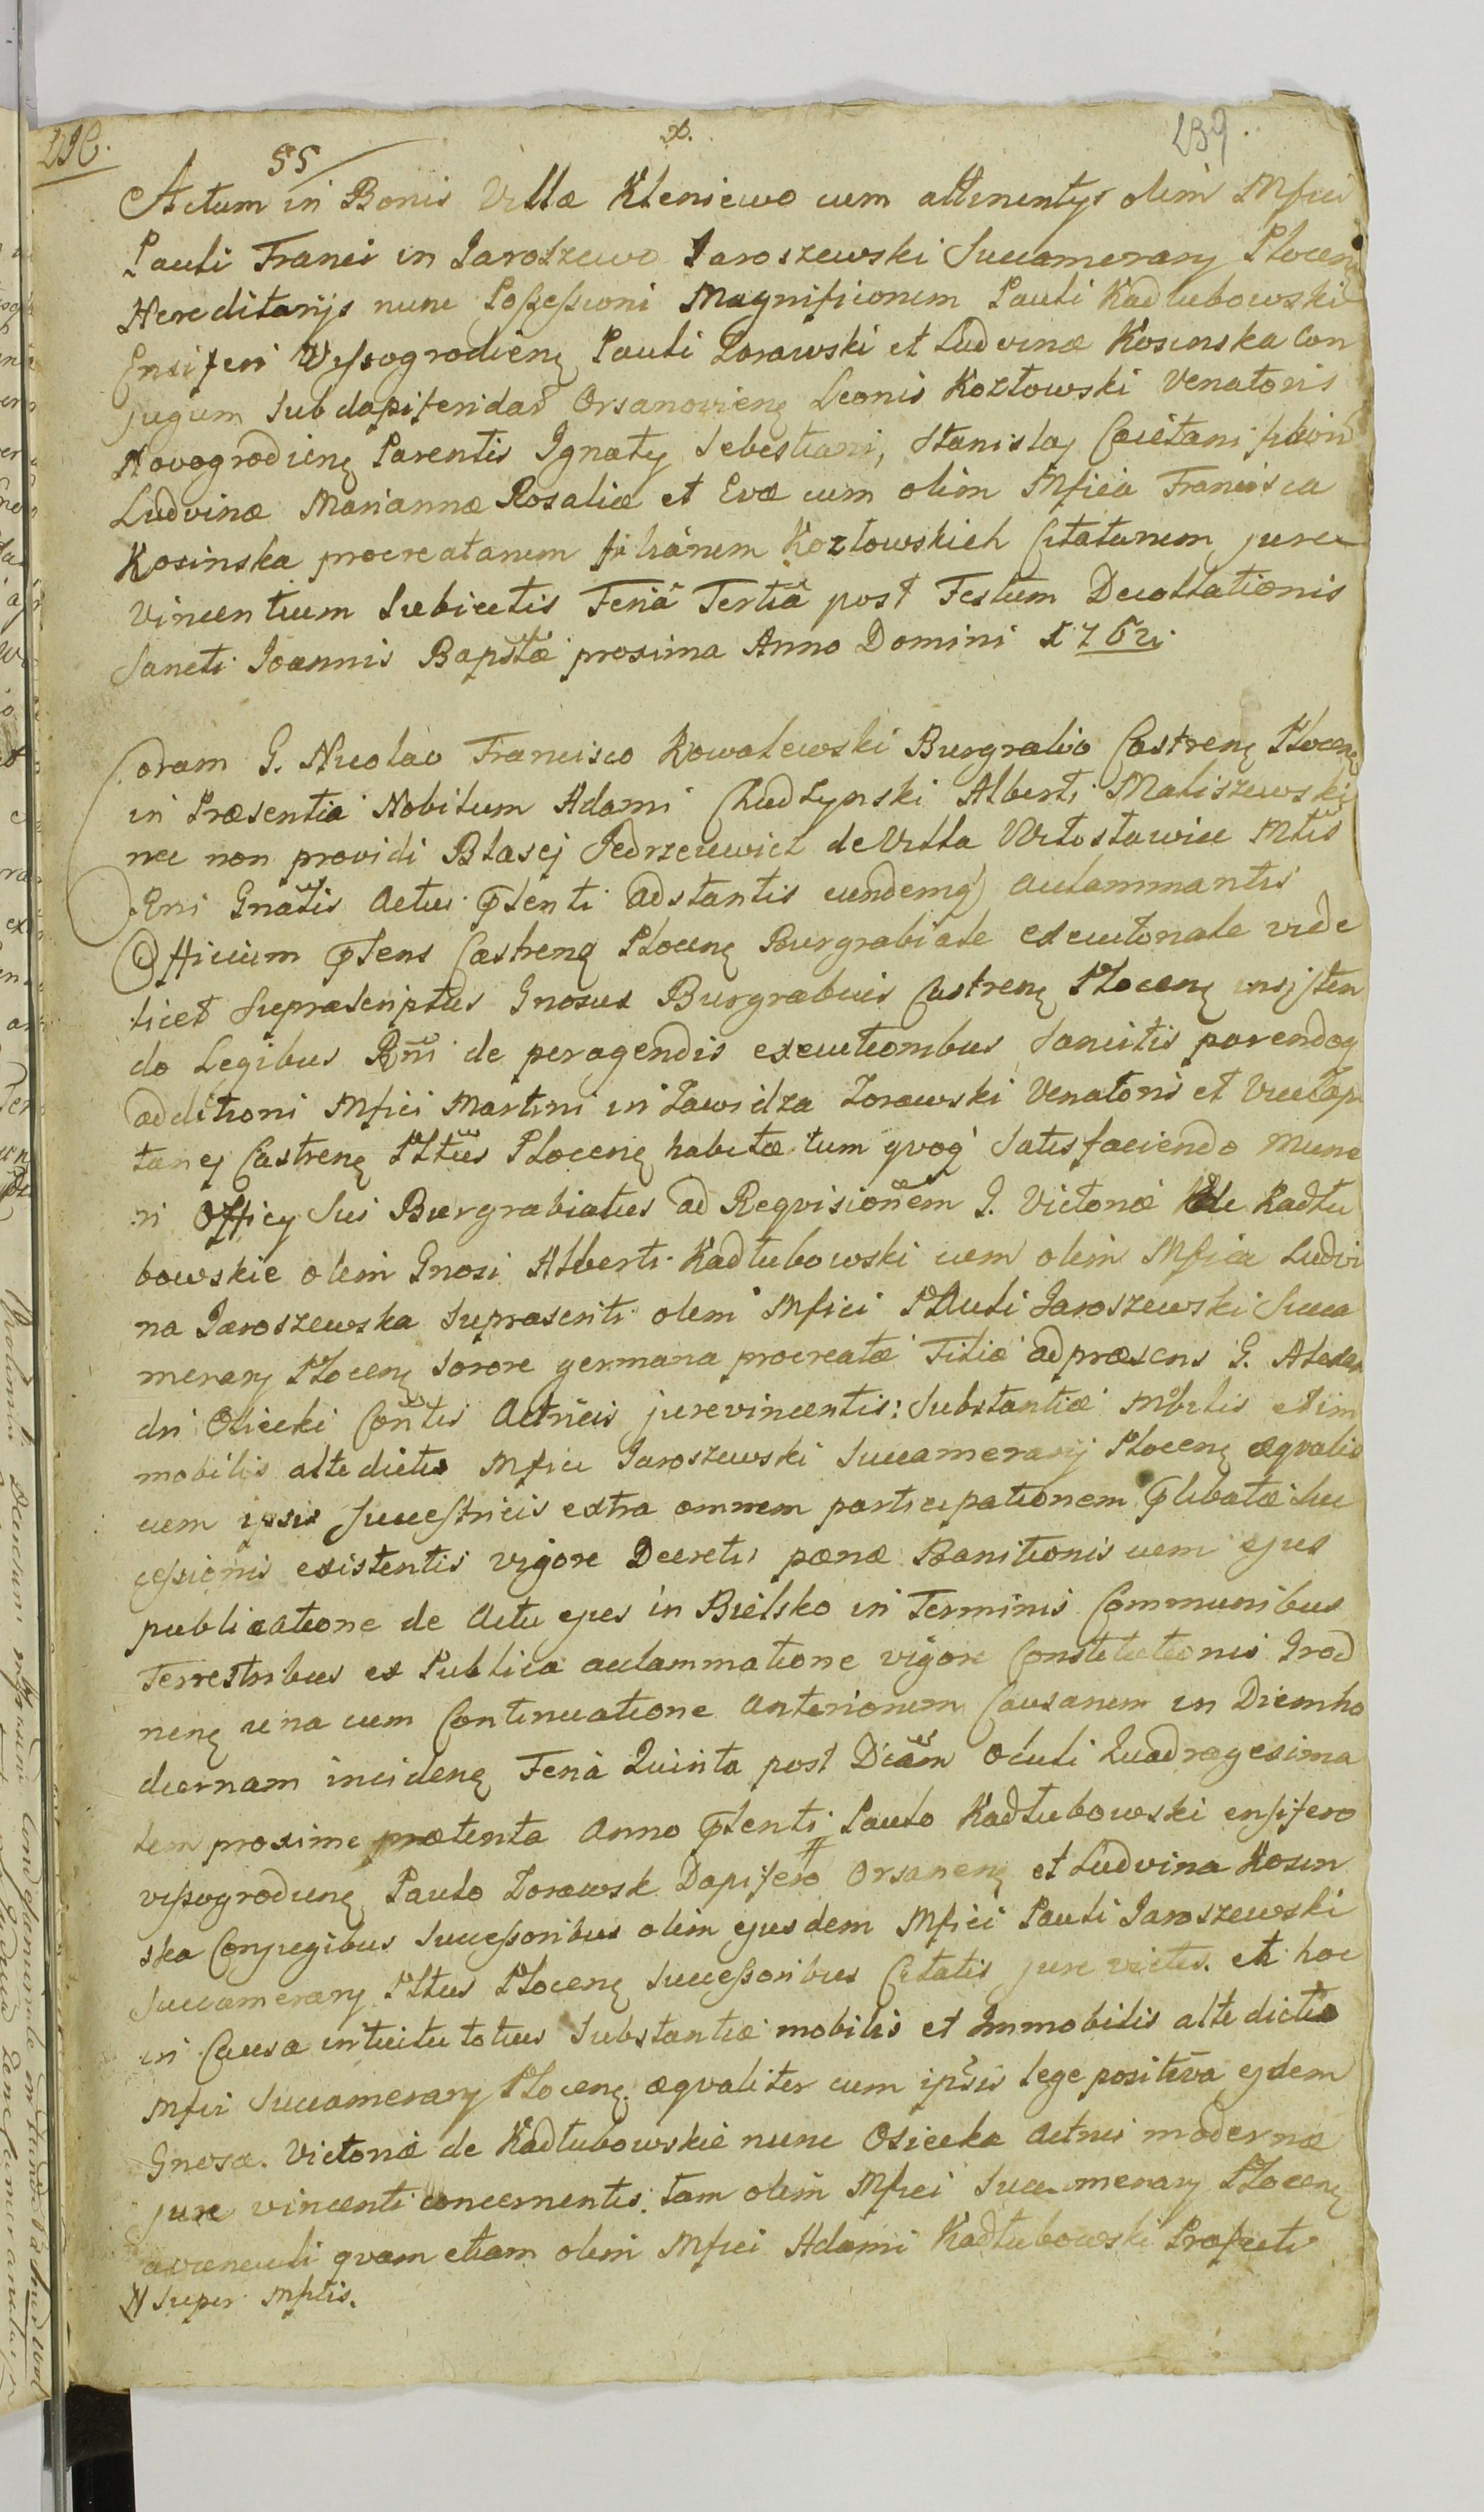 239.
55
Actum in Bonis Villæ Kleniewo cum attinentys olim Mfici
Pauli Franci in Jaroszewo Jaroszewski Succamerary Plocenę
Hereditarijs nunc Poßeßioni Magnificorum Pauli Kadłubowski
Ensiferi Wyßogrodienę Pauli Zorawski et Ludvinæ Kosinska Con
jugum Subdapiferidar Orsanovienę Leonis Kozłowski Venatoris
Novogrodienę Parentis Ignaty Sebestiani, Stanislaj Caietani filiorū
Ludvinæ Mariannæ Rosaliæ et Evæ cum olim Mfica Francisca
Kosinska procreatarum filiarum Kozłowskich Citatorum jure
Vincentium Subiectis Feriâ Tertiâ post Festum Decollationis
Sancti Joannis Bapstæ proxima Anno Domini 1762.
Coram G. Nicolao Francisco Kowalewski Burgrabio Castrenę Plocenę
in Præsentia Nobilium Adami Chudzynski Alberti Maliszewski
nec non providi Blasej Jedrzeiewicz de Villa Witosławice Mtis
Eni Gnatis Actui Pſenti adstantis eundemq acclammantis
Officium Pſens Castrenę Plocenę Burgrabiale executoriale vide
licet Supræscriptus Gnosus Burgrabius Castrenę Plocenę insisten
do Legibus Rni de peragendis executionibus Sancitis parendoq
additioni Mfici Martini in Zawidza Zorawski Venatoris et Vicecap
tanej Castrenę Pltus Plocenę habitæ tum qvoq Satisfaciendo Mune
ri Officy Sui Burgrabiatus ad Reqvisionem G. Victoriæ de Kadłu
bowskie olim Gnosi Alberti Kadłubowski cum olim Mfica Ludvi
na Jaroszewska Suprascriti olim Mfici Pauli Jaroszewski Succa
merary Plocenę Sorore germana procreatæ Filiæ ad præsens G. Alexan
dri Osiecki Contis Actricis jurevincentis: Substantiæ Mobilis et im
mobilis alte dicti Mfici Jaroszewski Succamerarij Plocenę æqvalis
cum ipsis Succeßricis extra omnem participationem Plibatæ Suc
ceßionis existentis vigore Decreti pænæ Banitionis cum ejus
publicatione de Actu ejus in Bielsko in Terminis Communibus
Terrestribus ex Publica acclammatione vigore Constitutionis Grod
nenę una cum Continuatione Anteriorum Causarum in Diem ho
diernam incidenę Feriâ Quinta post Dicam Oculi Quadragesima
lem proxime prætenta Anno Pſenti Paulo Kadłubowski ensifero
vißogrodienę Paulo Zorawsk Dapifero Orsanenę et Ludvina Kosin
ska Conjugibus Succeßoribus olim ejusdem Mfici Pauli Jaroszewski
Succamerary Pltus Plocenę Succeßoribus Citatis jure victis. et hoc
in Causa intuitu totius Substantiæ mobilis et Immobilis alte dicti
Mfici Succamerary Plocenę æqvaliter cum ipsis lege positiva ejdem
Gnosæ. Victoriæ de Kadłubowskie nunc Osiecka Actrici modernæ
jure vincenti concernentis. tam olim Mfici Succamerary Plocenę
avunculi qvam etiam olim Mfici Adami Kadłubowski Præfecti
Super Mfitis.